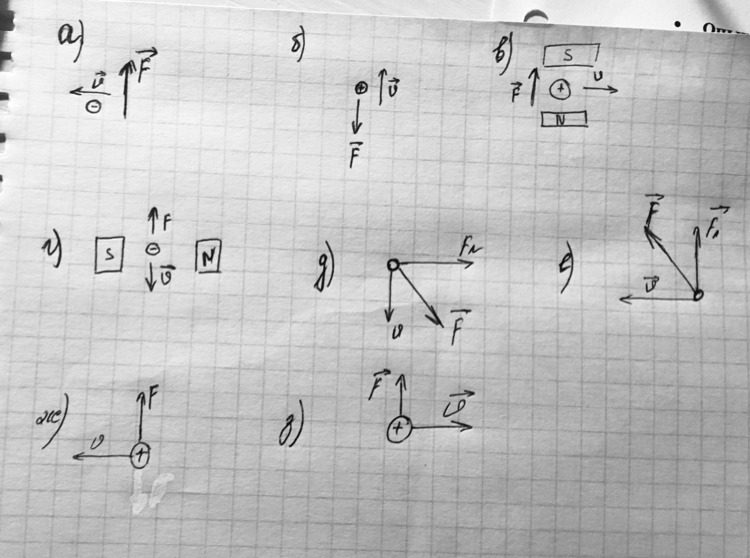 а) v⃗ ⊖ F⃗
б) ⊕ v⃗ F⃗
в) S F⃗ ⊕ v N
г) S F ⊖ v⃗ N
д) Fл v F⃗
е) F⃗ Fл v⃗
ж) F v ⊕
з) F⃗ ⊕ v⃗